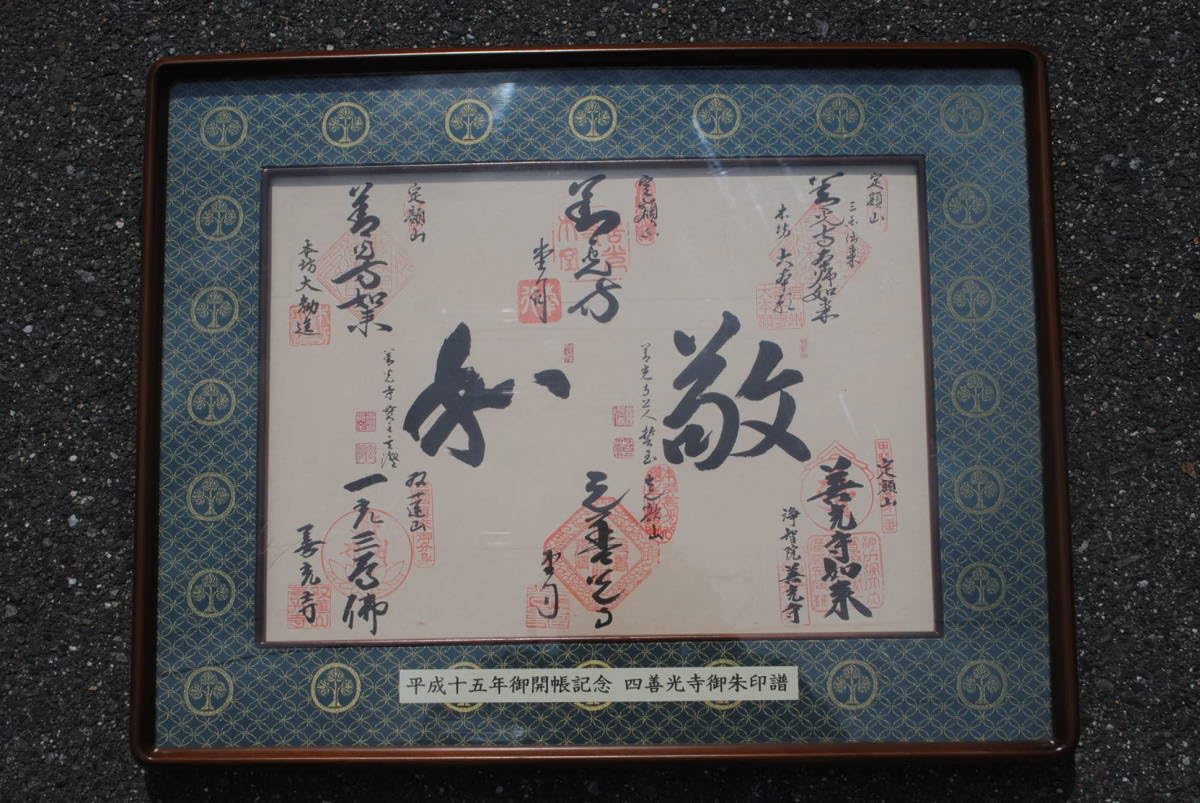 定額山
三國傳来
善光寺本師如来
本坊 大本願
定額山
善光寺
堂司
定額山
善光寺如来
本坊 大勧進
敬
善光寺上人誓玉
善光寺貫主玄澄
定額山
善光寺如来
浄智院 善光寺
定額山
元善光寺
堂司
双蓮山
一光三尊佛
善光寺
平成十五年御開帳記念 四善光寺御朱印譜